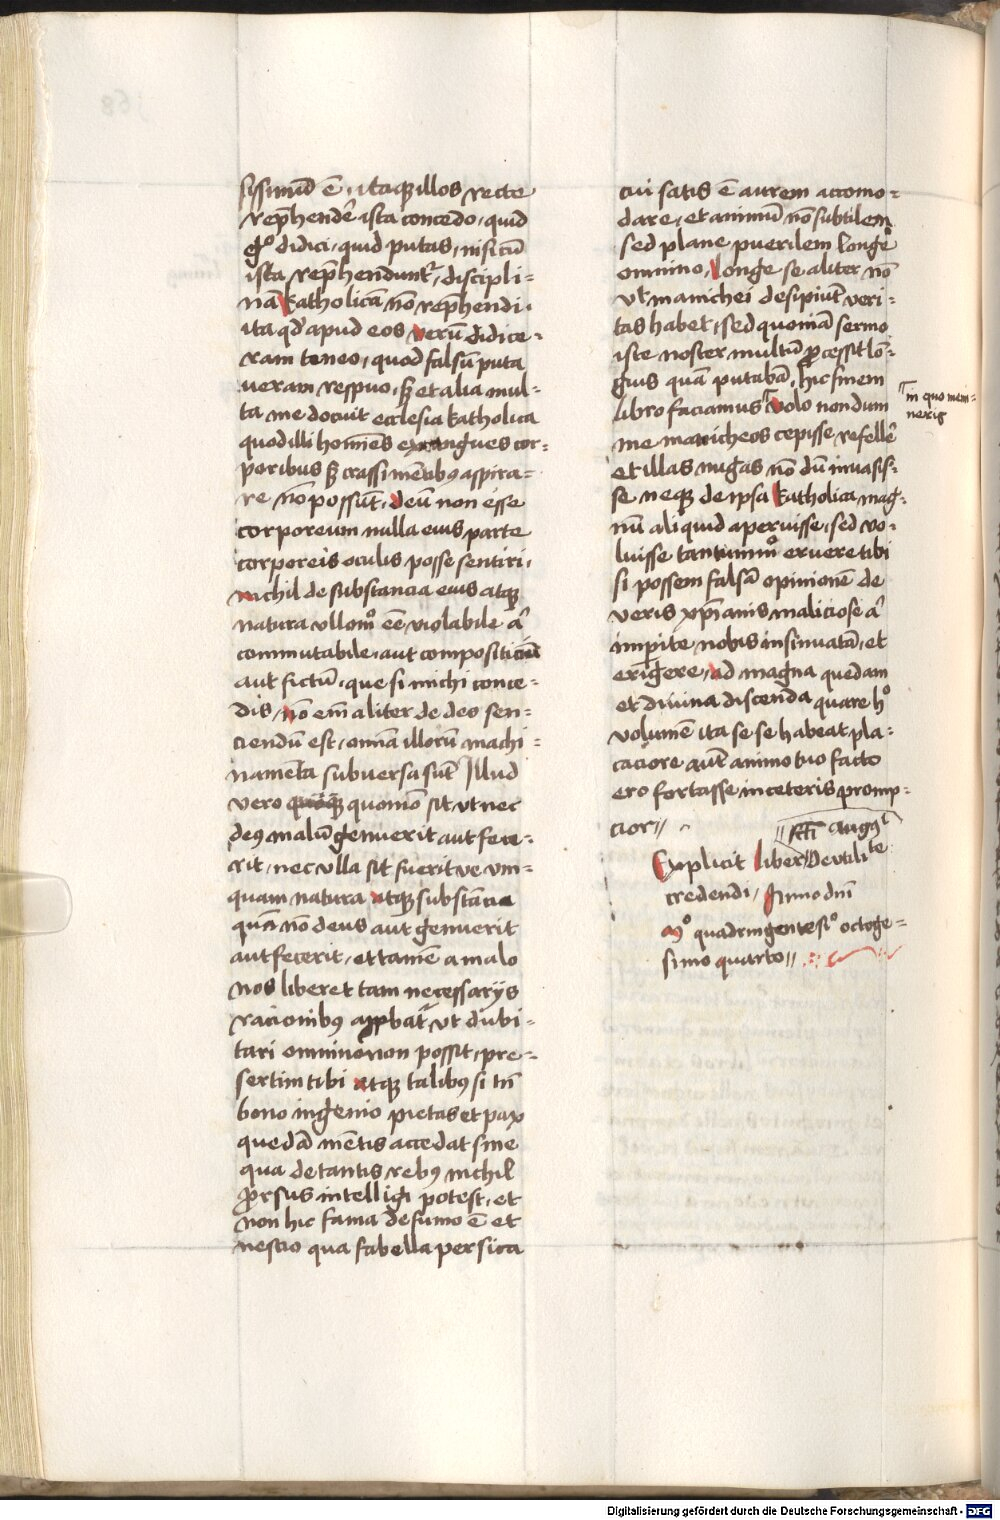 sissimū ē, itaqꝫ illos recte
rep̄hendē ista concedo, quid
gͦ didici, quid putas, nisi cū
ista rep̄hendunt᷑, discipli=
nā katholicā nō rep̄hendi,
ita qd̛ apud eos verū didice=
ram teneo, quod falsū puta
ueram respuo, sꝫ et alia mul=
ta me docuit ecclesia katholica
quod illi hoīes exangues cor=
poribus sꝫ crassi mētibꝰ aspira=
re nō possūt, deū non esse
corporeum nulla eius parte
corporeis oculis posse sentiri,
nichil de substancia eius atqꝫ
natura ullomͦ eē violabile aᷣ
commutabile, aut compositiciū
aut fictū, que si michi conce=
dis, nō em̄ aliter de deo sen=
ciendū est, omīa illorū machi=
namēta subuersa sūt Illud
vero quoniō sit, ut nec
deꝰ malū genuerit aut fece=
rit, nec ulla sit fueritve um=
quam natura atqꝫ substācia
quā nō deus aut genuerit
aut fecerit, et tamē a malo
nos liberet tam necessarijs
racionibꝰ aꝓbat᷑ ut dubi=
tari omnino non possit, pre=
sertim tibi atqꝫ talibꝰ si tn̄
bono ingenio pietas et pax
quedā mētis accedat sine
qua de tantis rebꝰ nichil
ꝓrsus intelligi potest, et
non hic fama de fumo ē et
nescio qua fabella persica
cui satis ē aurem accomo=
dare, et animū nō subtilem
sed plane puerilem longe
omnino, longe se aliter nō
ut manichei desipiūt veri=
tas habet, sed quoniā sermo
iste noster multū ꝓcessit lō=
gius quā putabā, hic finem
libro faciamus volo nondum
in quo memi=
neris
me manicheos cepisse refellē
et illas nugas nō dū inuasis=
se neqꝫ de ipsa katholica mag=
nū aliquid aperuisse, sed vo=
luisse tantummͦ eruere tibi
si possem falsā opinionē de
veris xp̄ianis maliciose aᷣ
imperite nobis insinuatā, et
erigere, ad magna quedam
et diuina discenda quare hͦ
volumē ita se se habeat pla=
caciore aut̄ animo tuo facto
ero fortasse in ceteris promp=
cior//
scī̄ augᵗⁱ
Explicit liber De utiliᵗᵉ
credendi / Anno dn̄i
Mͦ quadringentesiͦ octoge=
simo quarto //
Digitalisierung gefördert durch die Deutsche Forschungsgemeinschaft - DFG